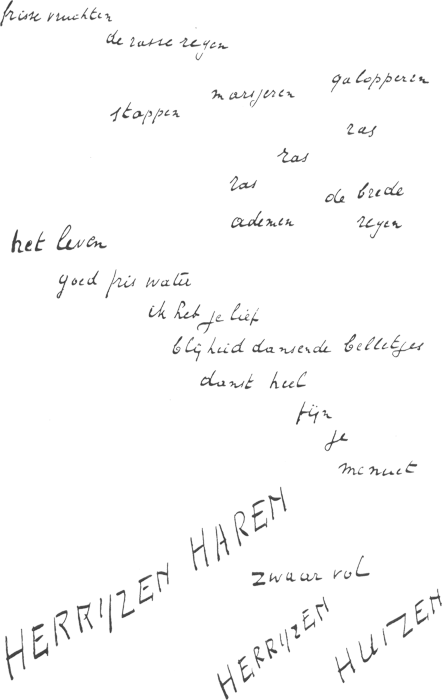 frisse vruchten
de rasse regen
marsjeren galopperen
stappen
ras
ras
ras de brede
ademen regen
het leven
goed fris water
ik heb je lief
blijheid dansende belletjes
danst heel
fijn
je
menuet
HERRIJZEN HAREN
zwaar vol
HERRIJZEN
HUIZEN